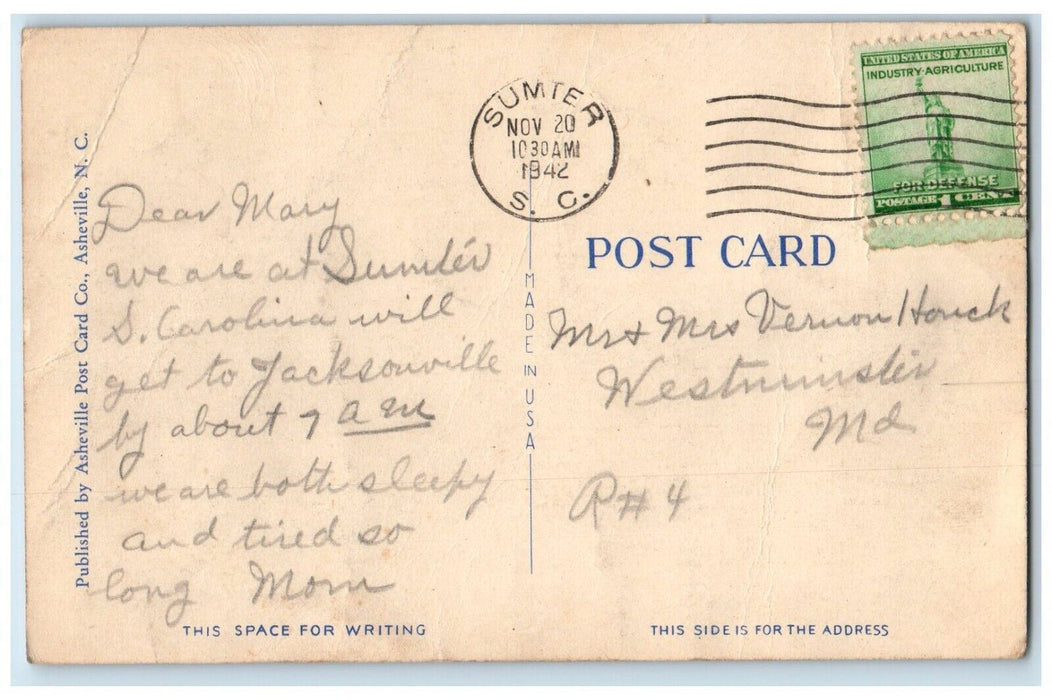 SUMTER
NOV 20
10 30 AM
1942
S. C.
UNITED STATES OF AMERICA
INDUSTRY·AGRICULTURE
FOR DEFENSE
POSTAGE 1 CENT
Published by Asheville Post Card Co., Asheville, N. C.
Dear Mary
we are at Sumter
S. Carolina will
get to Jacksonville
by about 7 a m
we are both sleepy
and tired so
long Mom
THIS SPACE FOR WRITING
MADE IN USA
POST CARD
Mr & Mrs Vernon Houck
Westminster
Md
R#4
THIS SIDE IS FOR THE ADDRESS